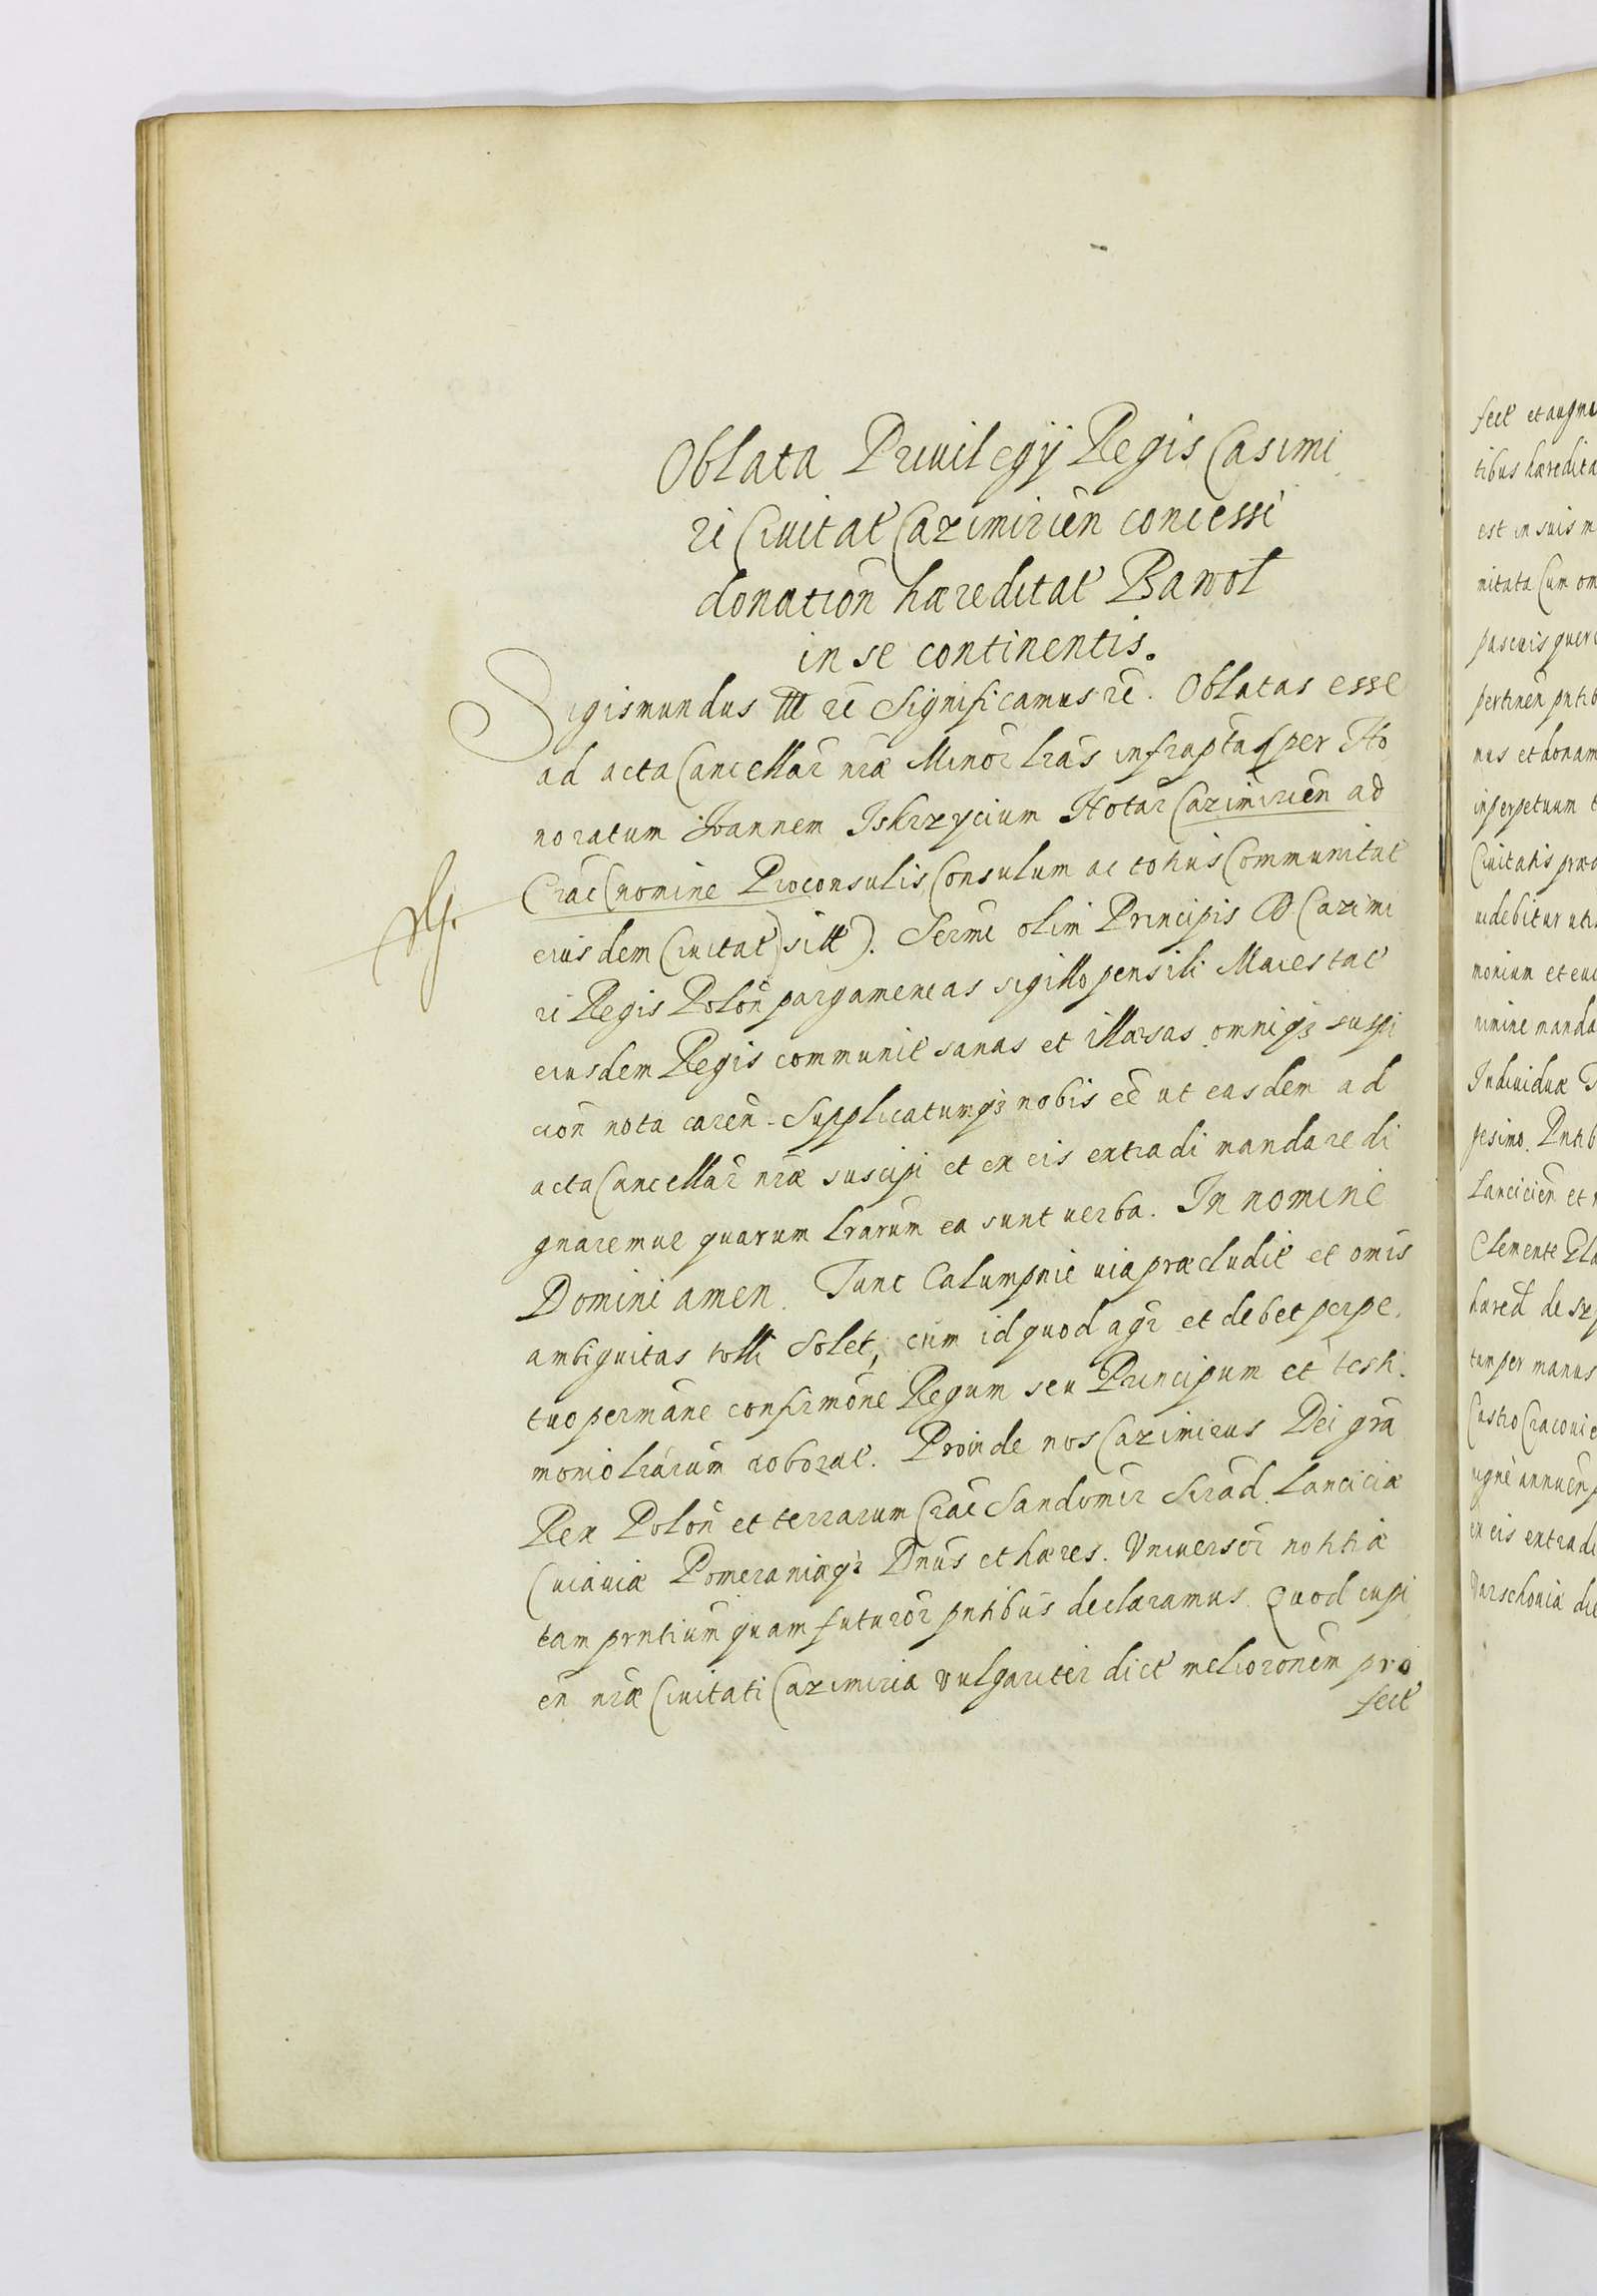 Oblata Priuilegij Regis Casimi
ri Ciuitat Cazimirien concessi
donation haereditat Bawol
in se continentis.
Sigismundus III etc Significamus etc. Oblatas esse
ad acta Cancellar nrae Minor lras infraptas (per Ho
noratum Joannem Iskrzycium Notar Cazimirien ad
Crac (nomine Proconsulis, Consulum ac totius Communitat
eiusdem Ciuitat) sitt). Sermi olim Principis D Cazimi
ri Regis Polon pargameneas sigillo pensili Maiestat
eiusdem Regis communit sanas et illaesas omniqz suspi
cion nota caren. Supplicatumqz nobis eē ut easdem ad
acta Cancellar nrae suscipi et ex eis extradi mandare di
gnaremur quarum lrarum ea sunt uerba. In nomine
Domini amen. Tunc Calumpnie uia praecludit et omis
ambiguitas tolli Solet, cum id quod agr et debet perpe
tuo permane confirmone Regum seu Principum et testi
monio lrarum roborat. Proinde nos Cazimirus Dei gra
Rex Polon et terrarum Crac Sandomir Sirad Lanciciae
Cuiauiae Pomeraniaeqz Dnus et haeres. Vniuersor notitiae
tam prntium quam futuror pntibus declaramus. Quod cupi
en nrae Ciuitati Cazimiria vulgariter dict melioronem pro
fect
fect et augm
tibus haeredita
est in suis m
mitata Cum om
pascuis
pertinen pntib
mus et donam
in perpetuum
Ciuitatis prae
uidebitur uti
monium et
rimine manda
Indiuiduae
gesimo. Pntib
Lancicien et
Clemente
haered de
tum per manus
Castro Cracouie
annuen
ex eis extradi
Varschouia die